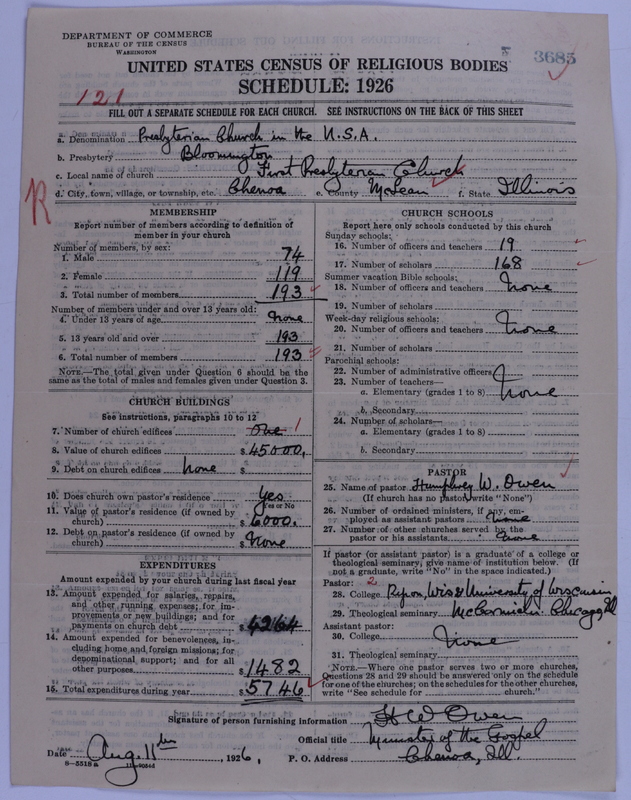 DEPARTMENT OF COMMERCE
BUREAU OF THE CENSUS
WASHINGTON
3685
UNITED STATES CENSUS OF RELIGIOUS BODIES
SCHEDULE: 1926
121
FILL OUT A SEPARATE SCHEDULE FOR EACH CHURCH. SEE INSTRUCTIONS ON THE BACK OF THIS SHEET
a. Denomination Presbyterian Church in the U.S.A.
b. Presbytery Bloomington
c. Local name of church First Presbyterian Church
d. City, town, village, or township, etc. Chenoa e. County McLean f. State Illinois
R
MEMBERSHIP
Report number of members according to definition of
member in your church
Number of members, by sex:
1. Male 74
2. Female 119
3. Total number of members 193
Number of members under and over 13 years old:
4. Under 13 years of age None
5. 13 years old and over 193
6. Total number of members 193
NOTE.—The total given under Question 6 should be the
same as the total of males and females given under Question 3.
CHURCH BUILDINGS
See instructions, paragraphs 10 to 12
7. Number of church edifices One 1
8. Value of church edifices $45000.
9. Debt on church edifices None $
10. Does church own pastor's residence Yes
Yes or No
11. Value of pastor's residence (if owned by
church) $6000.
12. Debt on pastor's residence (if owned by
church) $None
EXPENDITURES
Amount expended by your church during last fiscal year
13. Amount expended for salaries, repairs,
and other running expenses; for im-
provements or new buildings; and for
payments on church debt $4264
14. Amount expended for benevolences, in-
cluding home and foreign missions; for
denominational support; and for all
other purposes $1482
15. Total expenditures during year $5746
CHURCH SCHOOLS
Report here only schools conducted by this church
Sunday schools:
16. Number of officers and teachers 19
17. Number of scholars 168
Summer vacation Bible schools:
18. Number of officers and teachers None
19. Number of scholars
Week-day religious schools:
20. Number of officers and teachers None
21. Number of scholars
Parochial schools:
22. Number of administrative officers
23. Number of teachers—
a. Elementary (grades 1 to 8) None
b. Secondary
24. Number of scholars—
a. Elementary (grades 1 to 8)
b. Secondary
PASTOR
25. Name of pastor Humphrey W. Owen
(If church has no pastor, write "None")
26. Number of ordained ministers, if any, em-
ployed as assistant pastors None
27. Number of other churches served by the
pastor or his assistants None
If pastor (or assistant pastor) is a graduate of a college or
theological seminary, give name of institution below. (If
not a graduate, write "No" in the space indicated.)
Pastor: 2
28. College Ripon, Wis & University of Wisconsin
29. Theological seminary McCormick Chicago, Ill
Assistant pastor:
30. College None
31. Theological seminary
NOTE.—Where one pastor serves two or more churches,
Questions 28 and 29 should be answered only on the schedule
for one of the churches; on the schedules for the other churches,
write "See schedule for church."
Signature of person furnishing information H W Owen
Official title Minister of the Gospel
Date Aug. 11th, 1926, P. O. Address Chenoa, Ill.
8-5518a